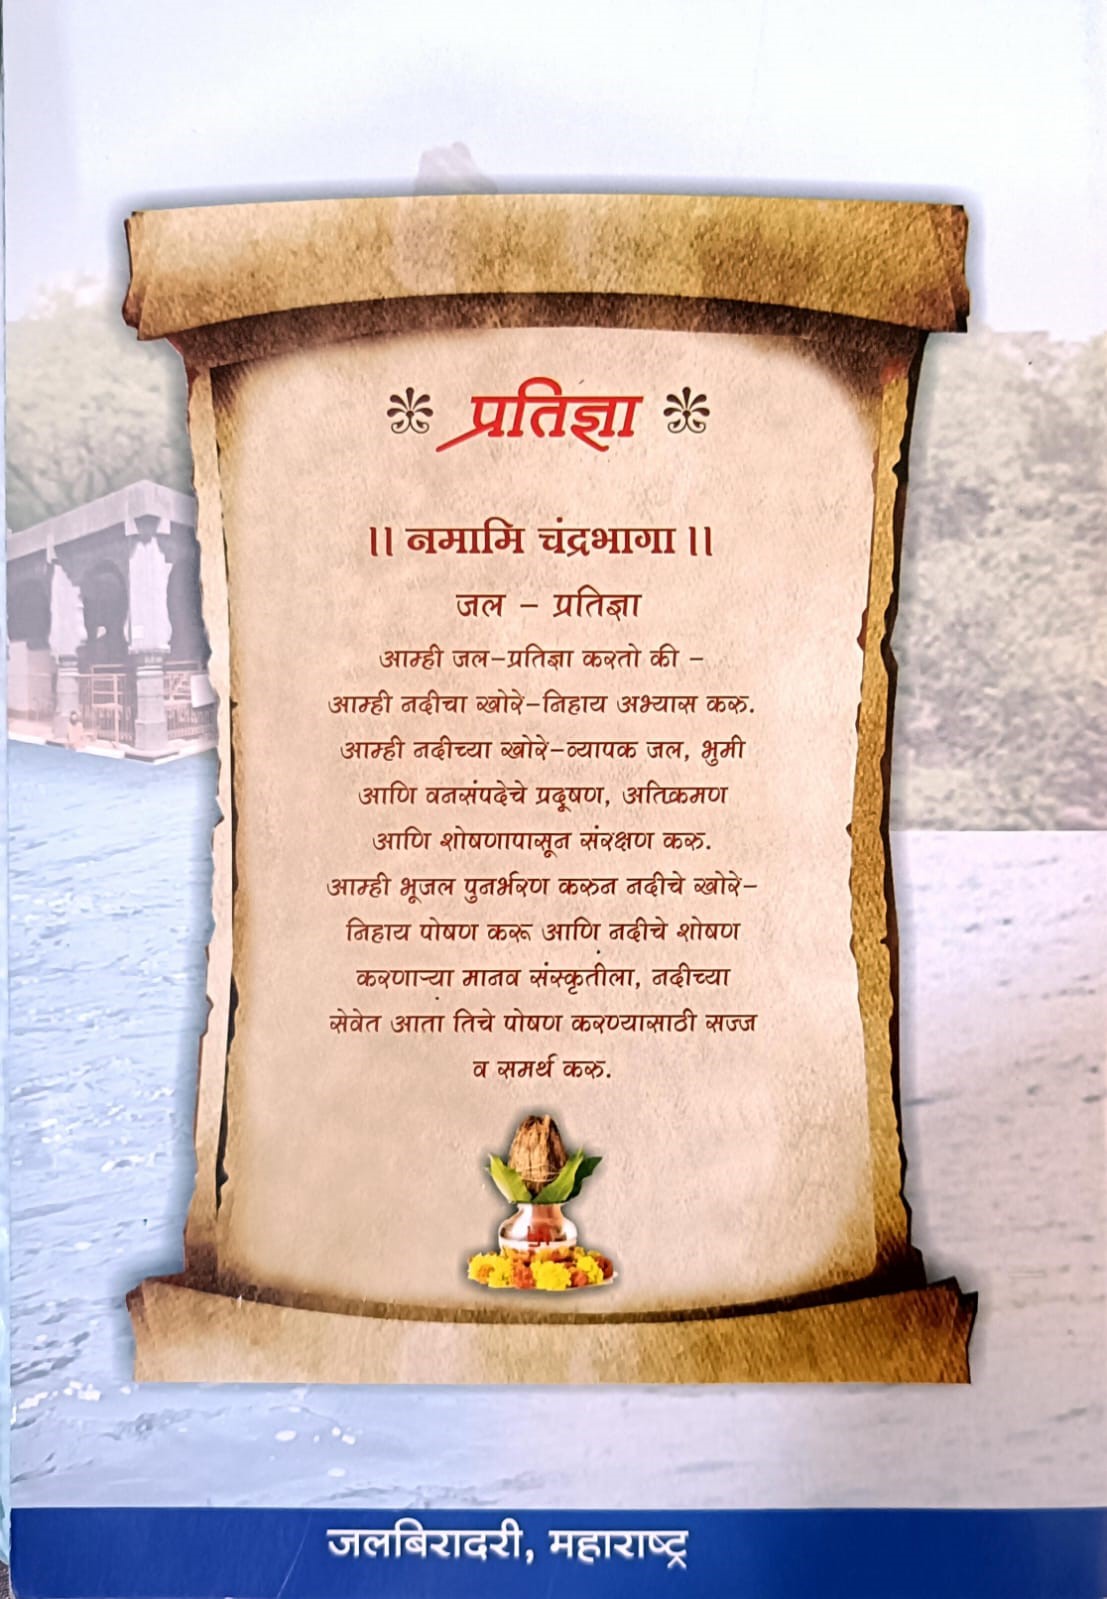 प्रतिज्ञा
।। नमामि चंद्रभागा ।।
जल – प्रतिज्ञा
आम्ही जल-प्रतिज्ञा करतो की –
आम्ही नदीचा खोरे-निहाय अभ्यास करु.
आम्ही नदीच्या खोरे-व्यापक जल, भुमी
आणि वनसंपदेचे प्रदूषण, अतिक्रमण
आणि शोषणापासून संरक्षण करु.
आम्ही भूजल पुनर्भरण करुन नदीचे खोरे-
निहाय पोषण करू आणि नदीचे शोषण
करणाऱ्या मानव संस्कृतीला, नदीच्या
सेवेत आता तिचे पोषण करण्यासाठी सज्ज
व समर्थ करु.
जलबिरादरी, महाराष्ट्र